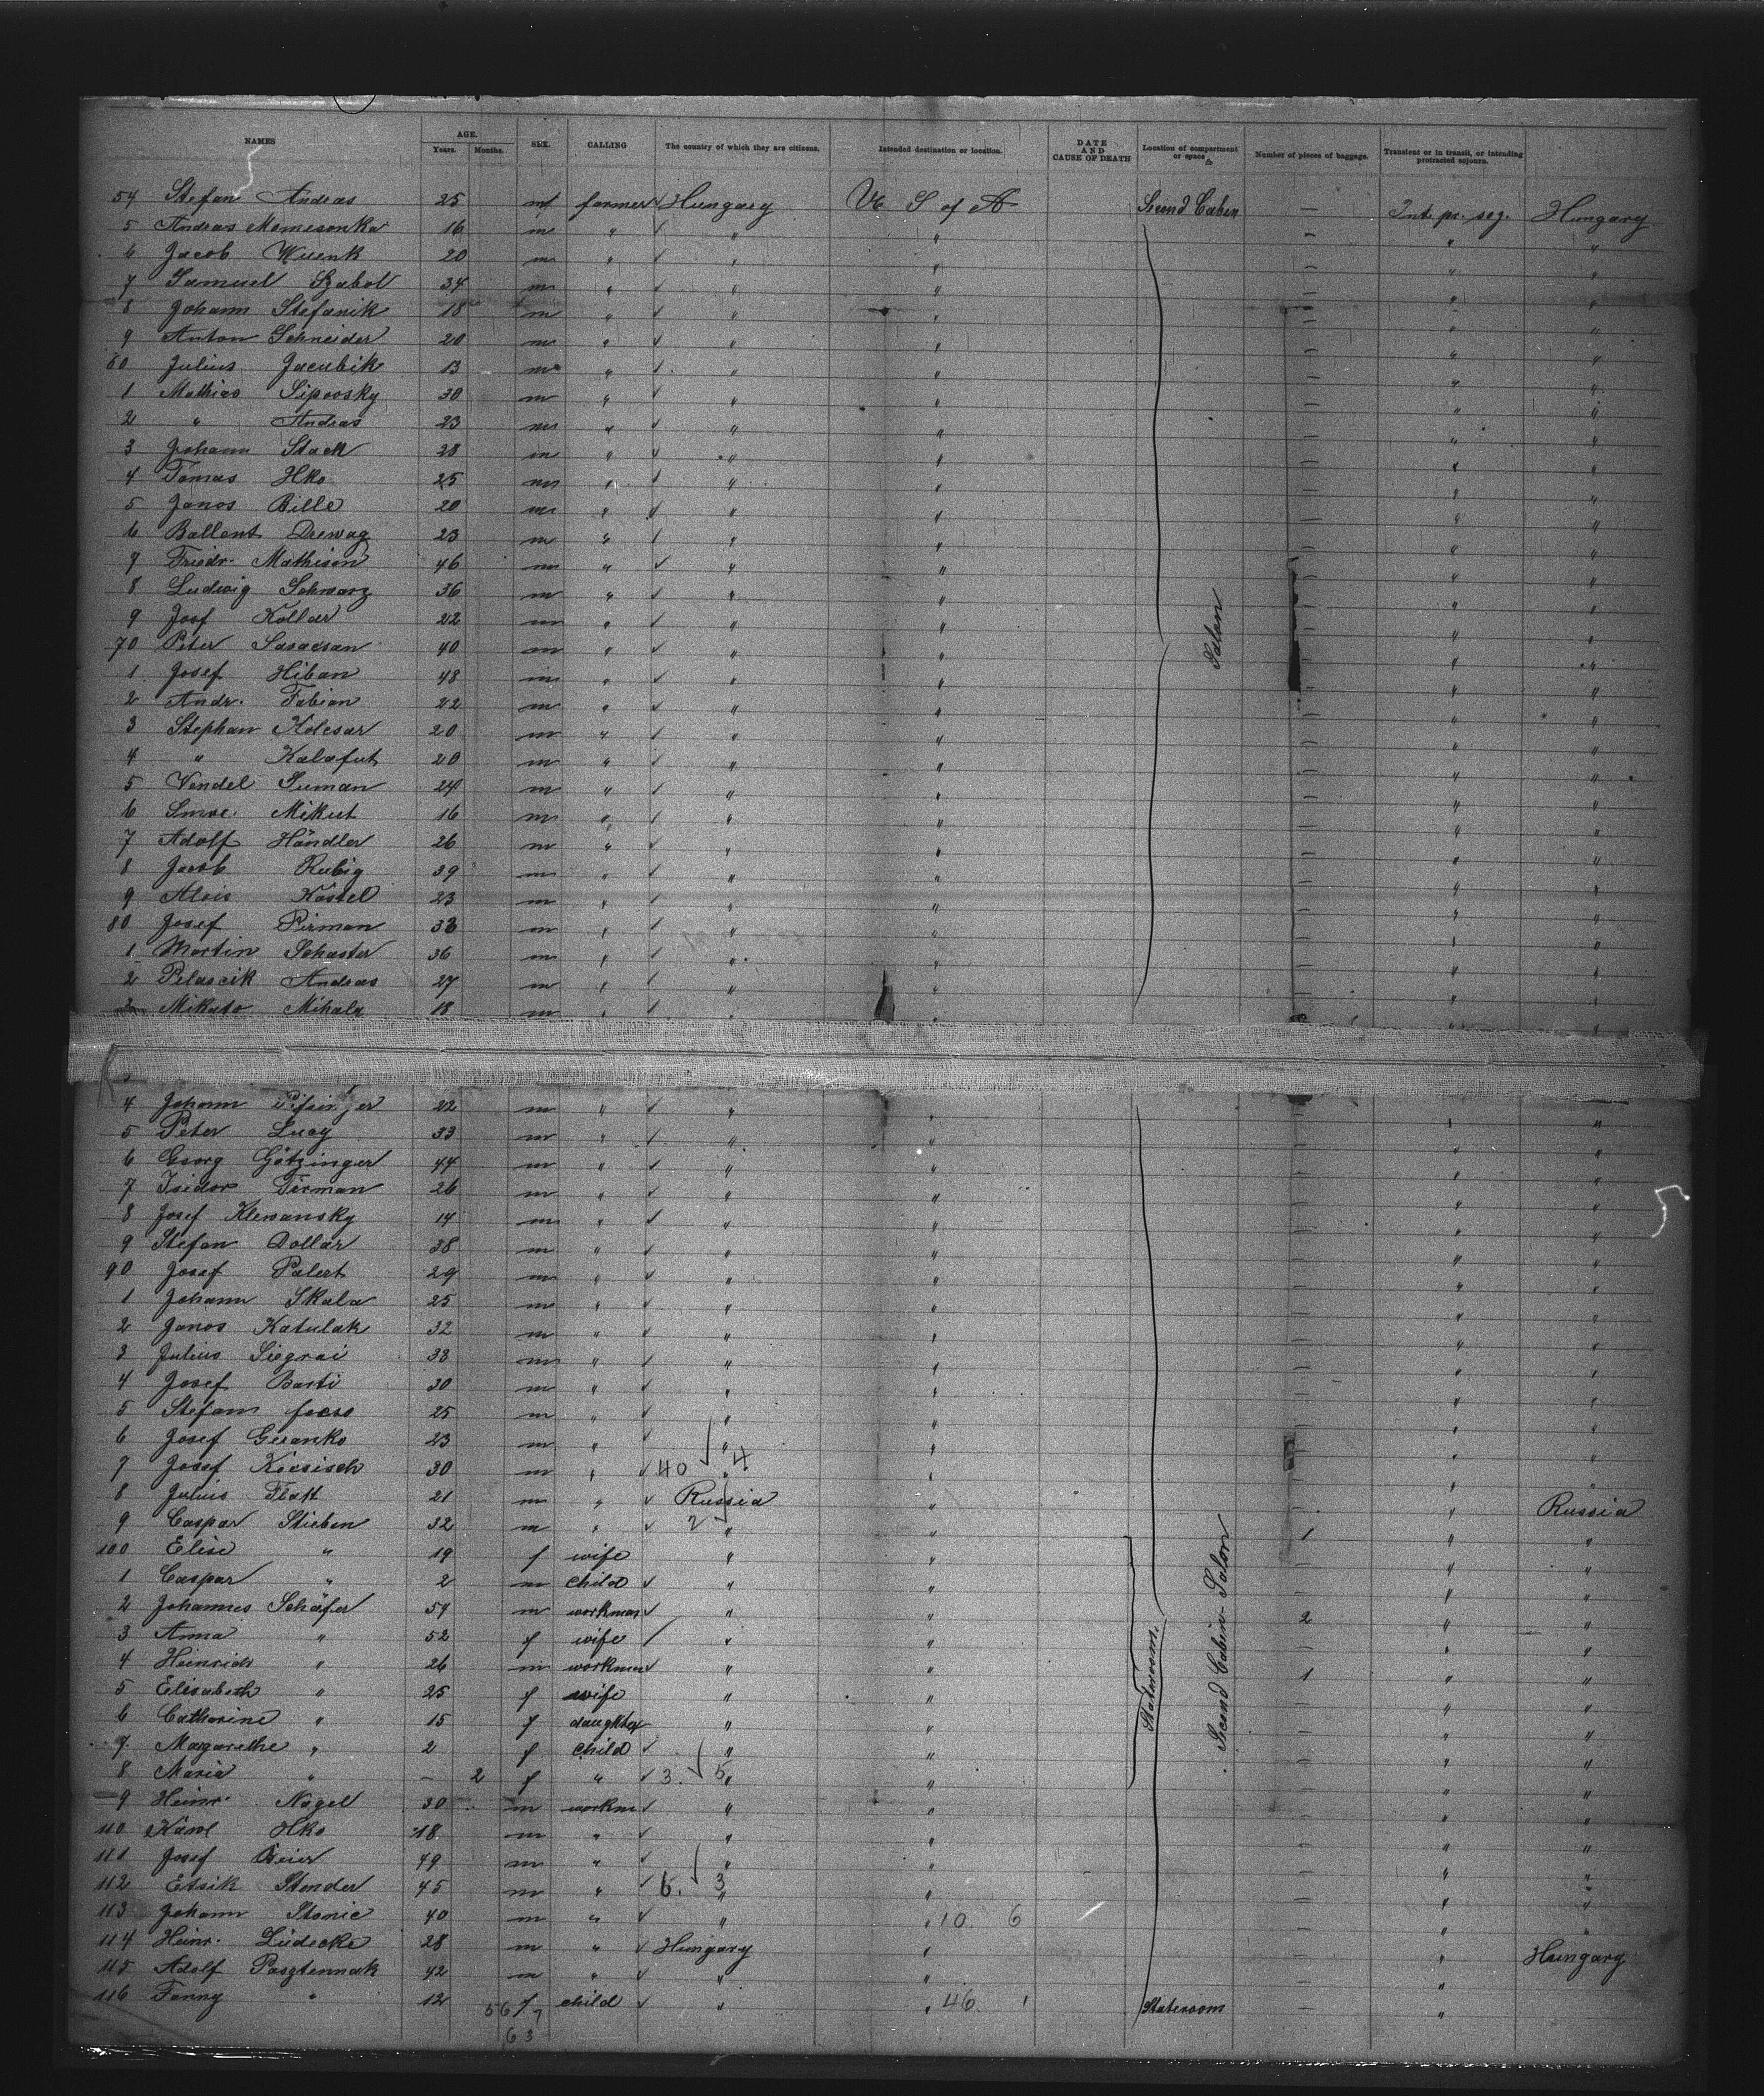 NAMES AGE. Years. Months. SEX. CALLING The country of which they are citizens. Intended destination or location. DATE AND CAUSE OF DEATH Location of compartment or space Number of pieces of baggage. Transient or in transit, or intending protracted sojourn.
54 Stefan Andras 25 m farmer Hungary U. S of A Second Cabin — Int. pr. soj. Hungary
5 Andras 16 m " " " — " "
6 Jacob 20 m " " " — " "
7 Samuel Szabol 34 m " " " — " "
8 Johann Stefanik 18 m " " " — " "
9 Anton Schneider 20 m " " " — " "
60 Julius Jacubik 13 m " " " — " "
1 Mathias Sipovsky 30 m " " " — " "
2 " Andras 23 m " " " — " "
3 Johann Stack 28 m " " " — " "
4 Tomas Hko 25 m " " " — " "
5 Janos Bille 20 m " " " — " "
6 Ballent Drewag 23 m " " " — " "
7 Friedr. Mathison 46 m " " " — " "
8 Ludwig Schwarz 36 m " " " — " "
9 Josf Kollar 22 m " " " Salon — " "
70 Peter 40 m " " " — " "
1 Josef Hiban 48 m " " " — " "
2 Andr. Fabian 22 m " " " — " "
3 Stephan Kolesar 20 m " " " — " "
4 " Kalafut 20 m " " " — " "
5 Vendel Suman 24 m " " " — " "
6 Imre Mikut 16 m " " " — " "
7 Adolf Händler 26 m " " " — " "
8 Jacob Rubig 39 m " " " — " "
9 Alois Kostel 23 m " " " — " "
80 Josef Pirman 33 m " " " — " "
1 Martin Schuster 36 m " " " — " "
2 Pelascik Andras 27 m " " " — " "
3 Mikato Mihala 18 m " " " — " "
4 Johann 22 m " " " " "
5 Peter Lucy 33 m " " " — " "
6 Georg Götzinger 44 m " " " — " "
7 Isidor Tirman 26 m " " " — " "
8 Josef Klewansky 14 m " " " — " "
9 Stefan Dollar 38 m " " " — " "
90 Josef Palert 29 m " " " — " "
1 Johann Skala 25 m " " " — " "
2 Janos Katulak 32 m " " " — " "
3 Julius Siegrai 33 m " " " — " "
4 Josef Barti 30 m " " " — " "
5 Stefan 25 m " " " — " "
6 Josef Geranko 23 m " " " — " "
7 Josef Kocsisch 30 m " 40 " 4 " — " "
8 Julius Flatt 21 m " Russia " — " Russia
9 Caspar Stieben 32 m " 2 " " 1 " "
100 Elise " 19 f wife " " — " "
1 Caspar " 2 m child " " — " "
2 Johannes Schäfer 54 m workman " " 2 " "
3 Anna " 52 f wife " " Stateroom. Second Cabin-Salon — " "
4 Heinrich " 26 m workman " " 1 " "
5 Elisabeth " 25 f wife " " — " "
6 Catharine " 15 f daughter " " — " "
7 Margarethe " 2 f child " " — " "
8 Maria " — 2 f " 3. " 5 " — " "
9 Heinr. Nagel 30 m workm " " — " "
110 Karol Hko 18 m " " " — " "
111 Josef Beier 49 m " " " — " "
112 Etsik Stender 45 m " 6. " 3 " — " "
113 Johann Stanic 40 m " " " 10. 6 — " "
114 Heinr. Lüdecke 28 m " Hungary " — " Hungary
115 Adolf 42 m " " " — "
116 Fanny " 12 f child " " 46. 1 Stateroom — "
56 7
63